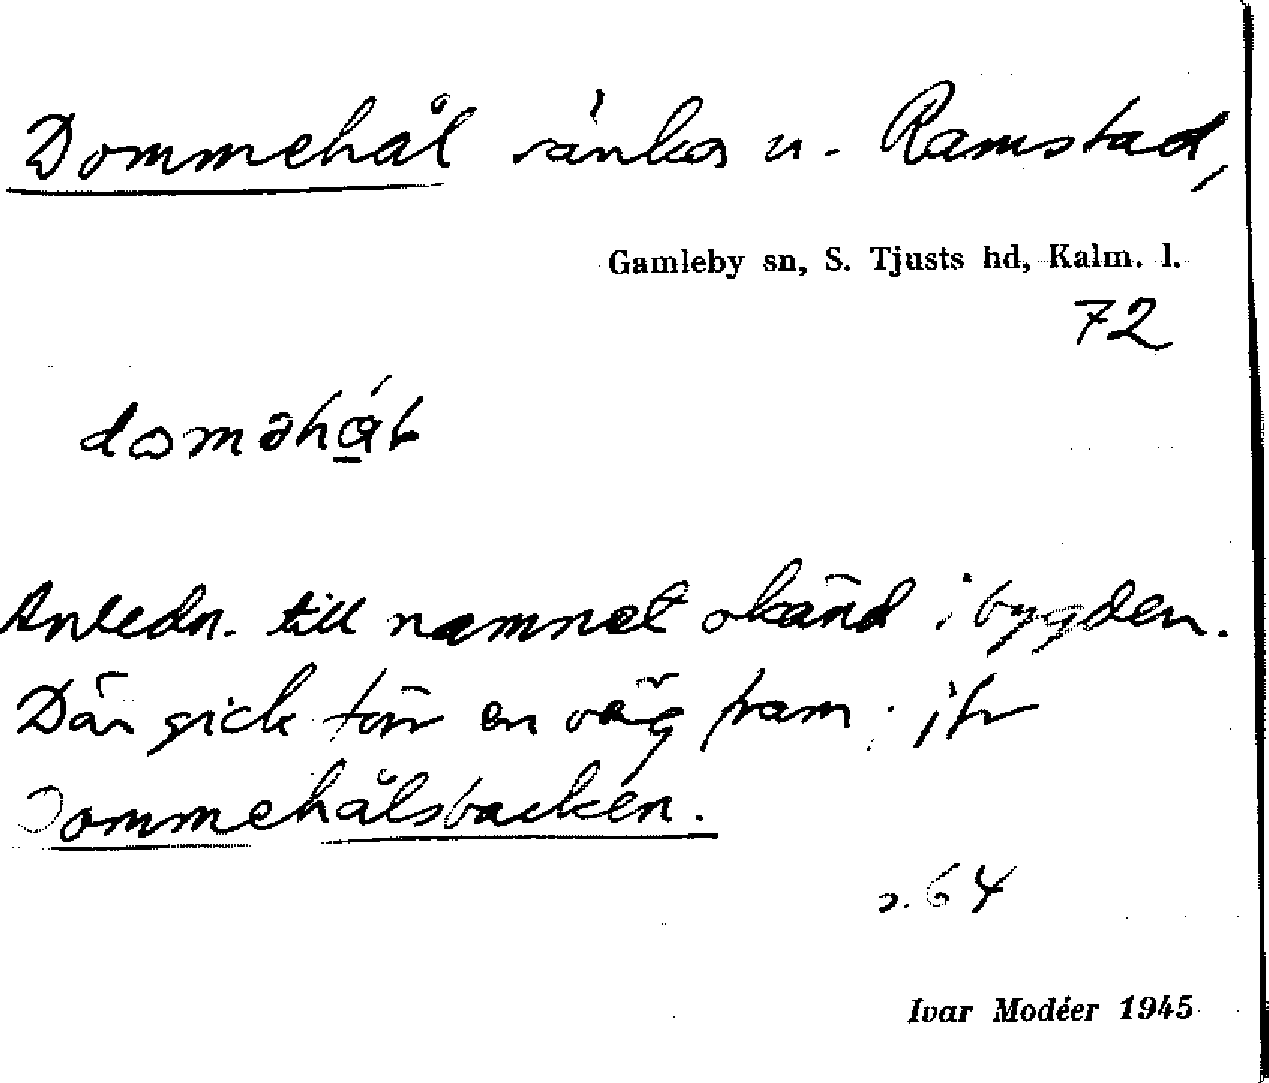 Dommehål sänka u. Ramstad,
Gamleby sn, S. Tjusts hd, Kalm. l.
72
Anledn. till namnet okänd i bygden.
Där gick förr en väg fram. jfr
Dommehålsbacken.
s. 64
Ivar Modéer 1945